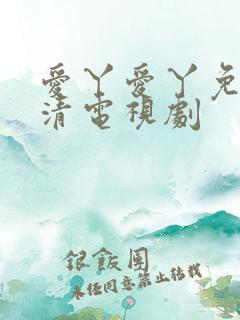 愛丫愛丫免
清電視劇
銀飯團
未经同意禁止转载